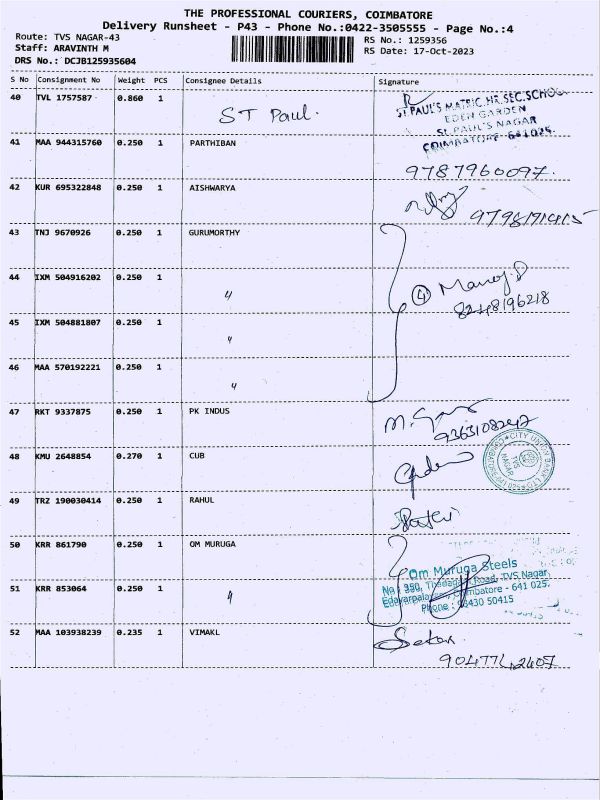 THE PROFESSIONAL COURIERS, COIMBATORE
Delivery Runsheet - P43 - Phone No.:0422-3505555 - Page No.:4
Route: TVS NAGAR-43
RS No.: 1259356
Staff: ARAVINTH M
RS Date: 17-Oct-2023
DRS No.: DCJB125935604
S No Consignment No Weight PCS Consignee Details Signature
40 TVL 1757587 0.860 1 ST Paul.
ST.PAUL'S MATRIC.HR.SEC.SCHOOL
EDEN GARDEN
ST.PAUL'S NAGAR
COIMBATORE-641025.
41 MAA 944315760 0.250 1 PARTHIBAN
9787960097.
42 KUR 695322848 0.250 1 AISHWARYA
43 TNJ 9670926 0.250 1 GURUMORTHY
44 IXM 504916202 0.250 1 "
④ Manoj.P
8248196218
45 IXM 504881807 0.250 1 "
46 MAA 570192221 0.250 1 "
47 RKT 9337875 0.250 1 PK INDUS
48 KMU 2648854 0.270 1 CUB
CITY UNION BANK LTD
TVS NAGAR
49 TRZ 190030414 0.250 1 RAHUL
50 KRR 861790 0.250 1 OM MURUGA
Om Muruga Steels
No : 350, Thadagam Road, TVS Nagar,
Edayarpalayam, Coimbatore - 641 025.
Phone : 98430 50415
51 KRR 853064 0.250 1 "
52 MAA 103938239 0.235 1 VIMAKL
Sekar